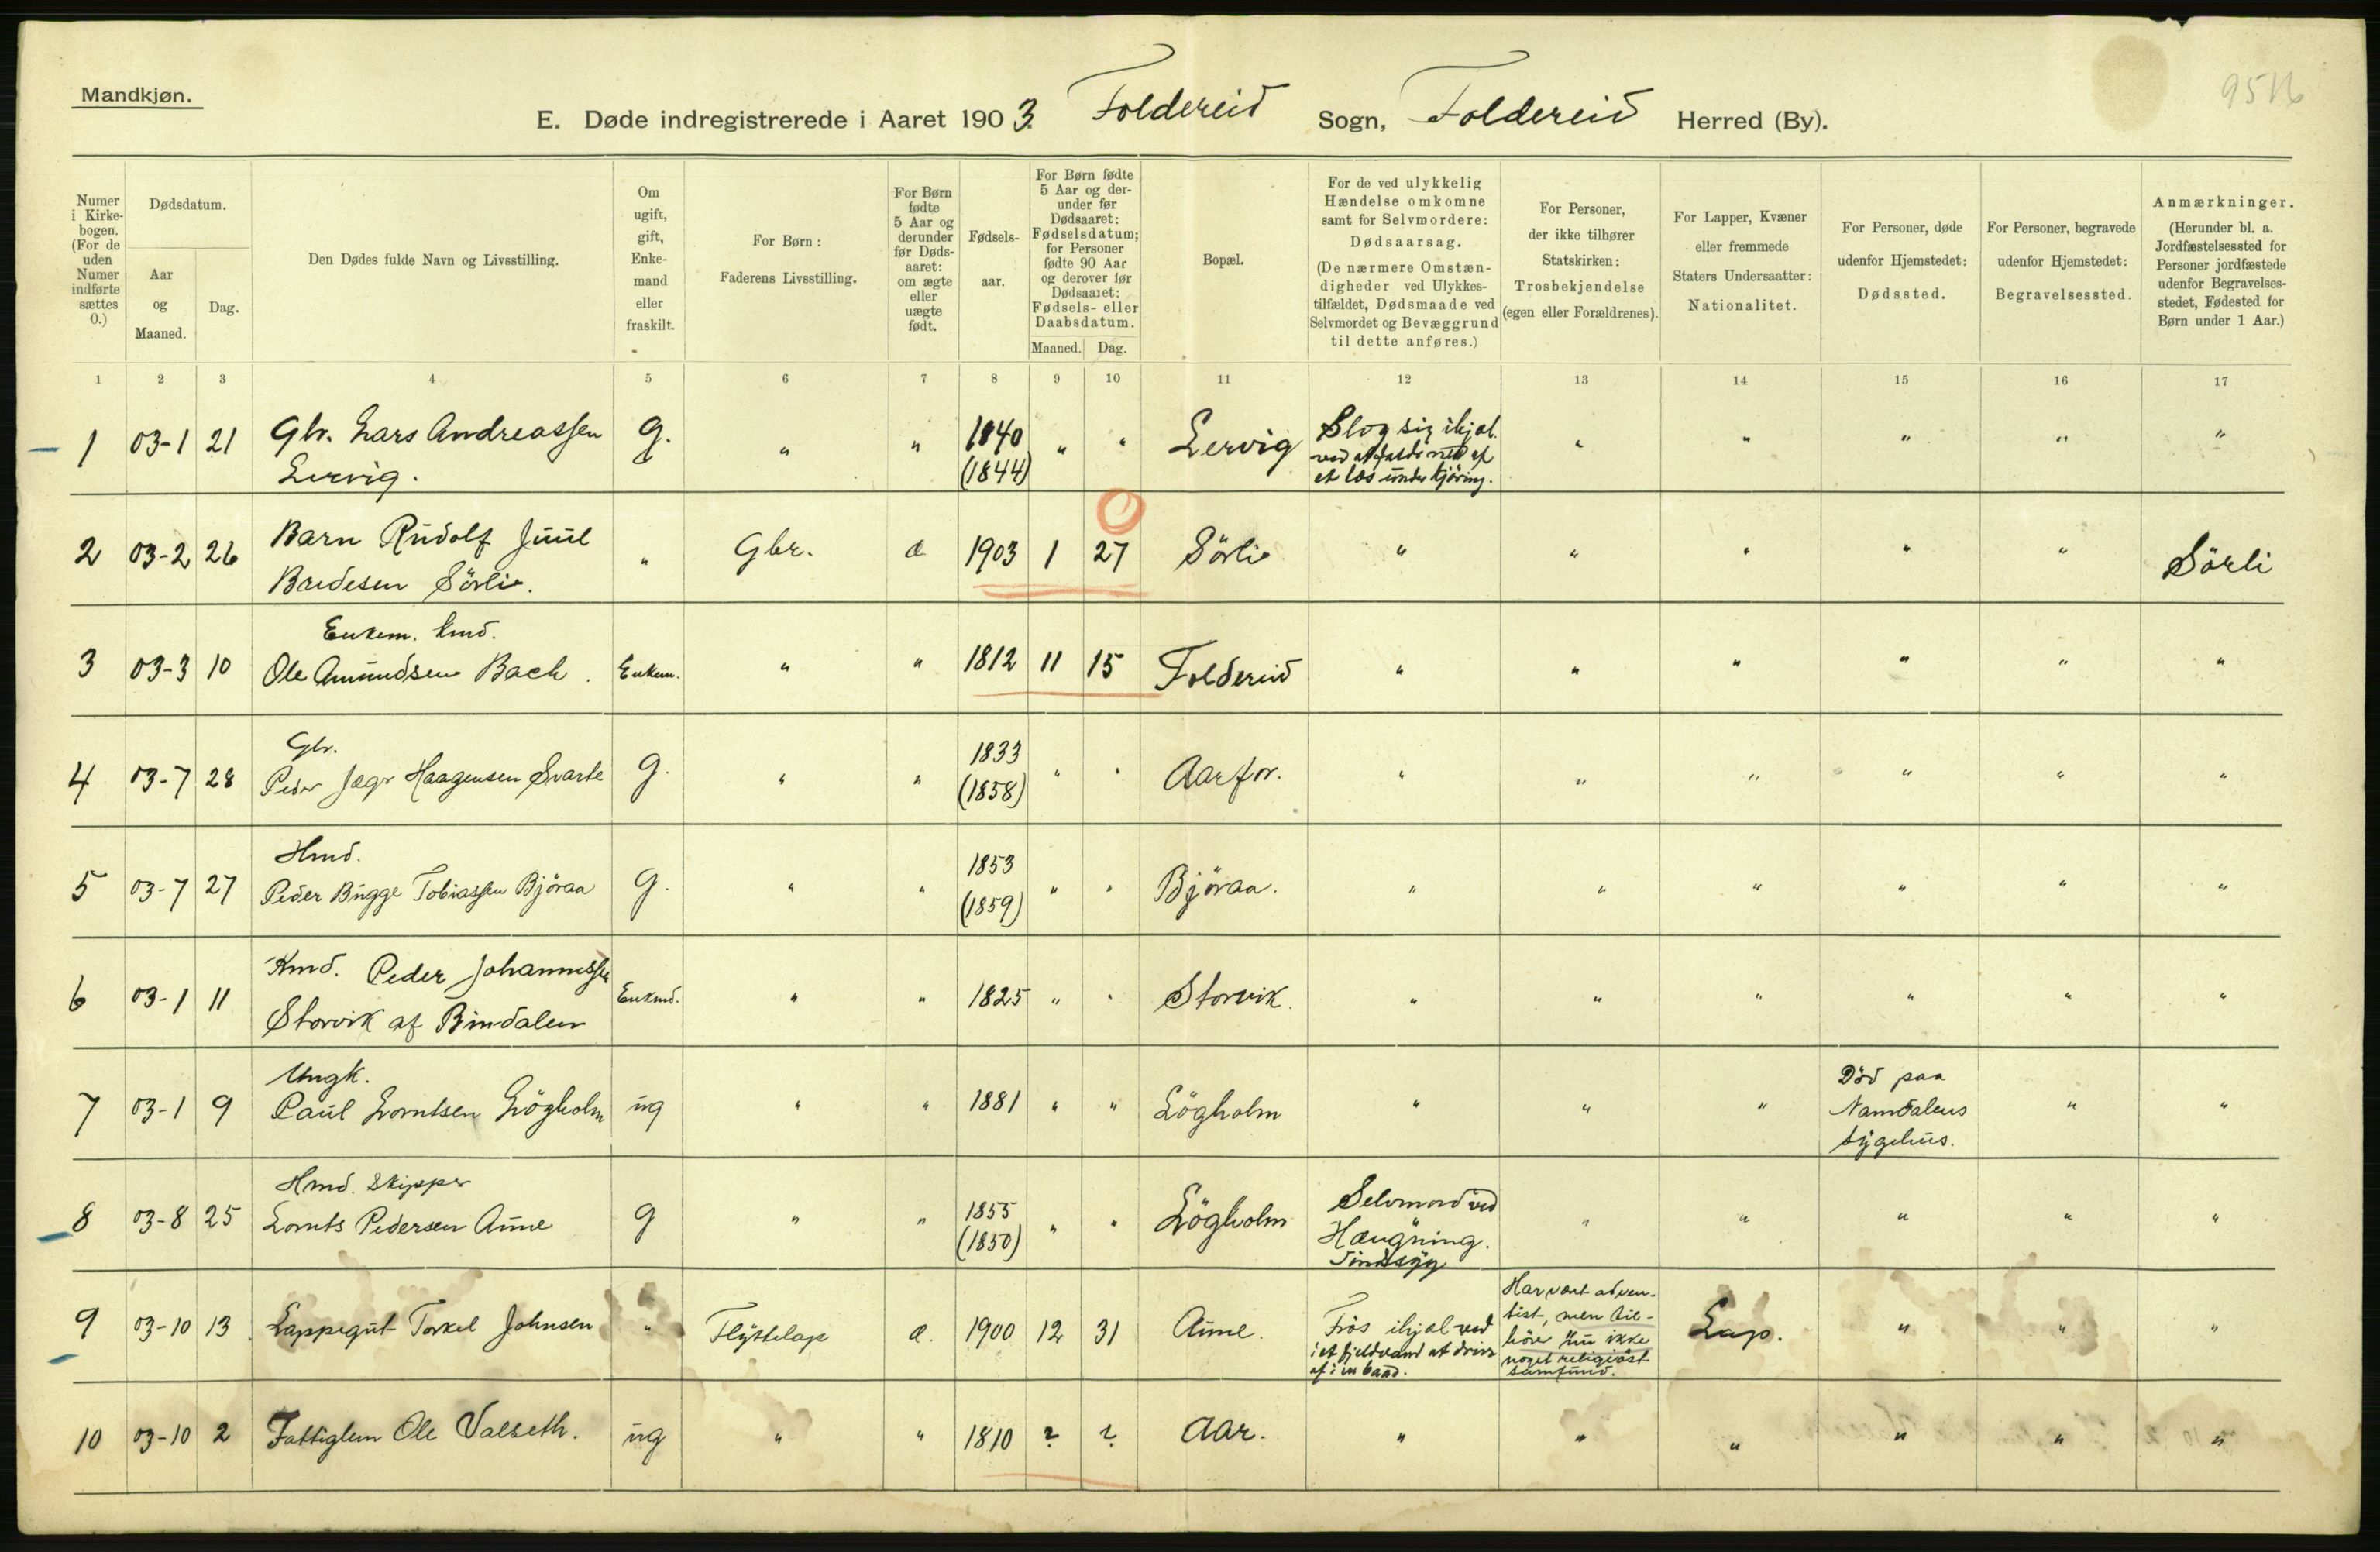 Mandkjøn.
9516
E. Døde indregistrerede i Aaret 1903. Foldereid Sogn, Foldereid Herred (By).
Numer i Kirke-bogen. (For de uden Numer indførte sættes 0.)
Dødsdatum.
Aar og Maaned.
Dag.
Den Dødes fulde Navn og Livsstilling.
Om ugift, gift, Enke-mand eller fraskilt.
For Børn: Faderens Livsstilling.
For Børn fødte 5 Aar og derunder før Døds-aaret: om ægte eller uægte født.
Fødsels-aar.
For Børn fødte 5 Aar og der-under før Dødsaaret: Fødselsdatum; for Personer fødte 90 Aar og derover før Dødsaaret: Fødsels- eller Daabsdatum.
Maaned. Dag.
Bopæl.
For de ved ulykkelig Hændelse omkomne samt for Selvmordere: Dødsaarsag. (De nærmere Omstæn-digheder ved Ulykkes-tilfældet, Dødsmaade ved Selvmordet og Bevæggrund til dette anføres.)
For Personer, der ikke tilhører Statskirken: Trosbekjendelse (egen eller Forældrenes).
For Lapper, Kvæner eller fremmede Staters Undersaatter: Nationalitet.
For Personer, døde udenfor Hjemstedet: Dødssted.
For Personer, begravede udenfor Hjemstedet: Begravelsessted.
Anmærkninger. (Herunder bl. a. Jordfæstelsessted for Personer jordfæstede udenfor Begravelses-stedet, Fødested for Børn under 1 Aar.)
1 2 3 4 5 6 7 8 9 10 11 12 13 14 15 16 17
1 03-1 21 Gbr. Lars Andreassen Lervig. g. " " 1840 (1844) " " Lervig Slog sig ihjel ved at falde ned af et læs under kjöring. " " " " "
2 03-2 26 Barn Rudolf Juul Bredesen Sörli. " Gbr. æ 1903 1 27 Sörli " " " " " Sörli
3 03-3 10 Enkem. kmd. Ole Amundsen Bach. Enkem. " " 1812 11 15 Foldereid " " " " " "
4 03-7 28 Gbr. Peder Jægr Haagensen Svarte g. " " 1833 (1858) " " Aarfor. " " " " " "
5 03-7 27 Hmd. Peder Bugge Tobiassen Björaa g. " " 1853 (1859) " " Björaa. " " " " " "
6 03-1 11 Kmd. Peder Johannessen Storvik af Bindalen Enkmd. " " 1825 " " Storvik. " " " " " "
7 03-1 9 Ungk. Paul Lorntsen Lögholm ug " " 1881 " " Lögholm " " " Död paa Namdalens sygehus. " "
8 03-8 25 Hmd. Skipper Lornts Pedersen Aune g " " 1855 (1850) " " Lögholm Selvmord ved Hængning. Sindssyg " " " " "
9 03-10 13 Lappegut Torkel Johnsen " Flyttelap æ. 1900 12 31 Aune. Frös ihjel ved i et fjeldvand at drive af i en baad. Har vært adven-tist, men til-hörer nu ikke noget religiöst samfund. Lap. " " "
10 03-10 2 Fattiglem Ole Valseth. ug " " 1810 ? ? Aar. " " " " " "